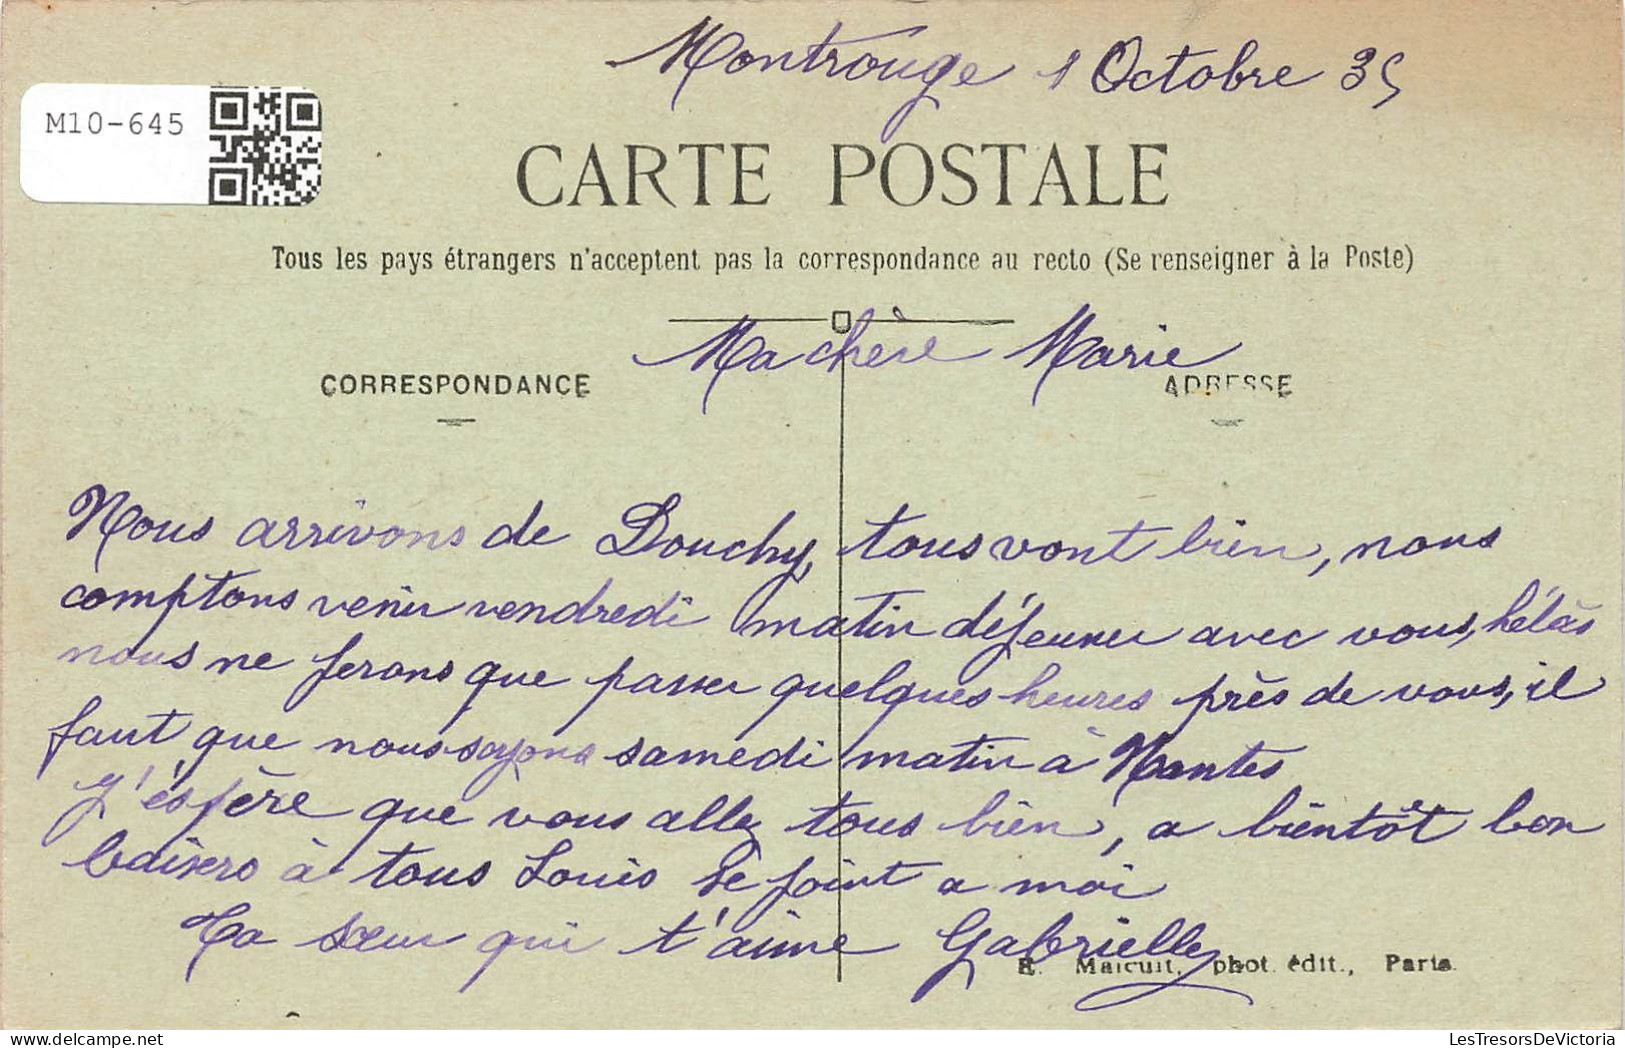 Montrouge 1 Octobre 35
M10-645
CARTE POSTALE
Tous les pays étrangers n'acceptent pas la correspondance au recto (Se renseigner à la Poste)
Ma chère Marie
CORRESPONDANCE
ADRESSE
Nous arrivons de Douchy, tous vont bien, nous
comptons venir vendredi matin déjeuner avec vous, hélàs
nous ne ferons que passer quelques heures près de vous, il
faut que nous soyons samedi matin à Nantes
J'éspère que vous allez tous bien, a bientôt bon
baisers à tous Louis se joint a moi
Ta sœur qui t'aime Gabrielle
E. Malcuit, phot. édit., Paris
LesTresorsDeVictoria